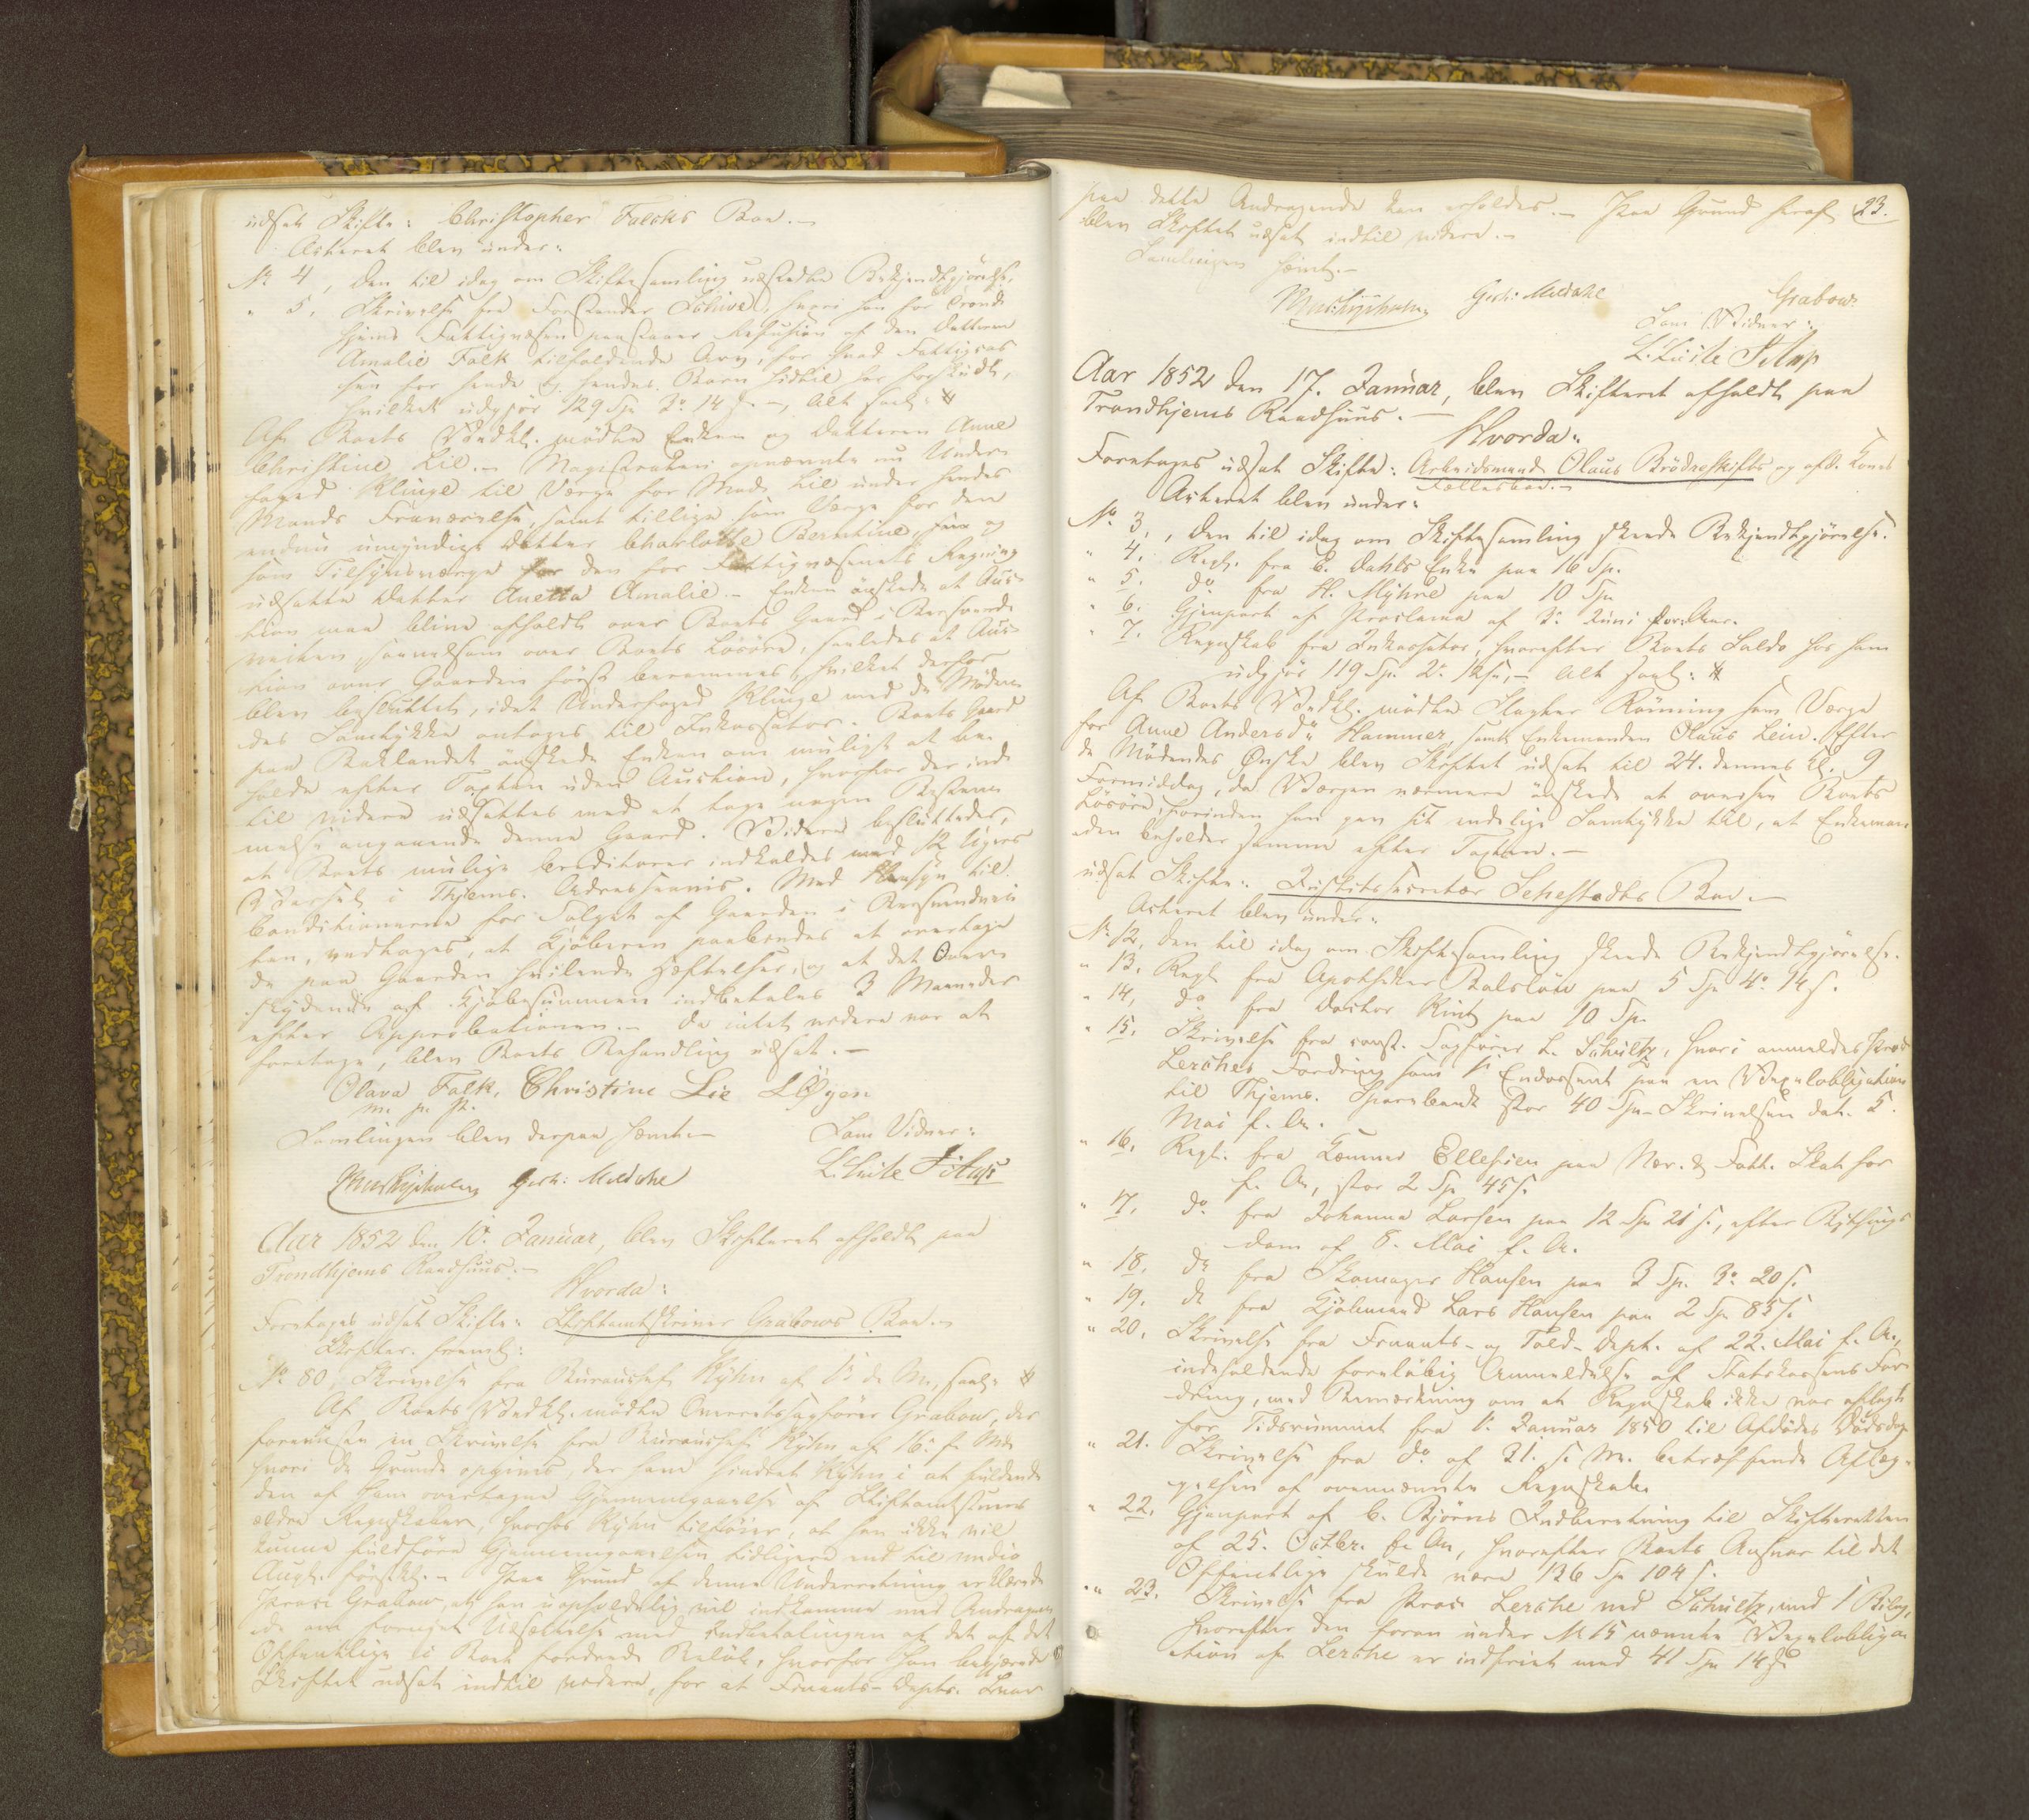 udsat Skifte: Christopher Falcks Boe.-
Acteret blev under:
No 4, den til idag om Skiftesamling udstedte Bekjendtgjörelse.
" 5, Skrivelse fra Forstander Schive, hvori han for Trond-
hjems Fattigvæsen paastaaer Refusion af den Datteren
Amalie Falk tilfaldende Arv, for hvad Fattigcas-
sen for hende og hendes Barn hidtil har forskudt,
hvilket udgjör 129 Sp. 2. 14 s. -, Alt saal:
Af Boets Vedk. mödte Enken og Datteren Anne
Christine Lie. - Magistraten opnævnte nu Under-
foged Klinge til Værge for Mad. Lie under hendes
Mands Fraværelse, samt tillige som Værge for den
endnu umyndige Datter Charlotte Berntine, og
som Tilsynsværge for den for Fattigvæsenets Regning
udsatte Datter Anetta Amalie. - Enken önskede at Auc-
tion maa blive afholdt over Boets Gaard i Bersvend-
veiten, saavelsom over Boets Lösöre, saaledes at Auc-
tion over Gaarden först berammes, hvilket derfor
blev besluttet, idet Underfoged Klinge med de Möden-
des Samtykke antages til Inkassator. Boets Gaard
paa Baklandet önskede Enken om muligt at be-
holde efter Taxten uden Auction, hvorfor der ind-
til videre udsættes med at tage nogen Bestem-
melse angaaende denne Gaard. Videre besluttedes,
at Boets mulige Creditorer indkaldes med 12 Ugers
Varsel i Thjems. Adresseavis. Med Hensyn til
Conditionerne for Salget af Gaarden i Bersvendvei-
ten, vedtoges, at Kjöberen paabindes at overtage
de paa Gaarden hvilende Hæftelser, og at det Over-
skydende af Kjöbesummen indbetales 3 Maaneder
efter Approbationen. - Da intet videre var at
foretage, blev Boets Behandling udsat. -
Olava Falk, Christine Lie LÖyen
m. p. P.
Samlingen blev derpaa hævet. - Som Vidner:
Gerh: Meldahl L. Lute
Aar 1852 den 10. Januar, blev Skifteret afholdt paa
Trondhjems Raadhuus. -
Hvorda:
Foretoges udsat Skifte: Stiftamtskriver Grabows Boe. -
Skifter. freml:
No 80, Skrivelse fra Bureauchef Kyhn af d. M., saal:
Af Boets Vedk. mödte Overretssagförer Grabow, der
foreviiste en Skrivelse fra Bureauchef Kyhn af 16. f. Md.
hvori de Grunde opgives, der have hindret Kyhn i at fuldende
den af ham overtagne Gjennemgaaelse af Stiftamtstuens
ældre Regnskaber, hvorfor Kyhn tilföier, at han ikke vil
kunne fuldföre Gjennemgaaelsen tidligere end til medio
Augt. förstk. - Paa Grund af denne Underretning erklærede
Proc. Grabow, at han uopholdelig vil indkomme med Andragen-
de om fornyet Udsættelse med Indbetalingen af det af det
Offentlige i Boet fordrede Belöb, hvorfor han begjærede
Skiftet udsat indtil videre, for at Finants-Depts. Svar
paa dette Andragende kan erholdes. - Paa Grund heraf 23.
blev Skiftet udsat indtil videre. -
Samlingen hævet. -
Gerh: Meldahl Grabow
Som Vidner:
L. Lute
Aar 1852 den 17. Januar, blev Skifteret afholdt paa
Trondhjems Raadhuus. -
Hvorda:
Foretoges udsat Skifte: Arbeidsmand Olaus Brödreskifts og afd. Kones
Fællesboe. -
Acteret blev under:
No 3, den til idag om Skiftesamling skeede Bekjendtgjörelse.
" 4. Regn. fra C. Dahls Enke paa 16 Sp.
" 5. do fra H. Myhre paa 10 Sp.
" 6. Gjenpart af Proclama af 3. Juni
" 7. Regnskab fra Inkassator, hvorefter Boets Saldo hos ham
udgjör 119 Sp. 2. - Alt saal:
Af Boets Vedk. mödte Slagter Rönning som Værge
for Anne Andersd. Hammer, samt Enkemanden Olaus Lein. Efter
de Mödendes Önske blev Skiftet udsat til 24. dennes Kl. 9
Formiddag, da Værgen nærmere önskede at overse Boets
Lösöre, forinden han gav sit endelige Samtykke til, at Enkeman-
den beholder samme efter Taxten. -
udsat Skifte: Justitssecretær Sehestedts Boe. -
Acteret blev under:
No 12, den til idag om Skiftesamling skeede Bekjendtgjörelse.
" 13. Regn. fra Apotheker Balslöw paa 5 Sp. 4. 14 s.
" 14, do fra Doctor Kint paa 10 Sp.
" 15. Skrivelse fra const. Sagförer L. Schultz, hvori anmeldes Proc.
Lerches Fordring som Endossent paa en Vexelobligation
til Thjems. Sparebank stor 40 Sp. - Skrivelsen dat. 5.
Mai f. A.
" 16. Regn. fra Kæmner Ellefsen paa Nær. & Fatt. Skat for
f. A., stor 2 Sp. 45 s.
" 17. do fra Johanna Larsen paa 12 Sp. 21 s., efter Bytings
Dom af 8. Mai f. A.
" 18. do fra Skomager Hansen paa 3 Sp. 3. 20 s.
" 19. do fra Kjöbmand Lars Hansen paa 2 Sp. 85 s.
" 20. Skrivelse fra Finants- og Told-Dept. af 22. Mai f. A.,
indeholdende forelöbig Anmeldelse af Statskassens For-
dring, med Bemærkning om at Regnskab ikke var aflagt
for Tidsrummet fra 1. Januar 1850 til Afdödes Dödsdag
" 21. Skrivelse fra do af 31. s. M. betræffende Aflæg-
gelsen af ovennævnte Regnskab.
" 22. Gjenpart af C. Björns Indberetning til Skifteretten
af 25. Octbr. f. A., hvorefter Boets Ansvar til det
Offentlige skulde være 136 Sp. 104 s.
" 23. Skrivelse fra Proc. Lerche ved Schultz, med 1 Bilag,
hvorefter den foran under No 15 nævnte Vexelobliga-
tion af Lerche er indfriet med 41 Sp. 14 s.